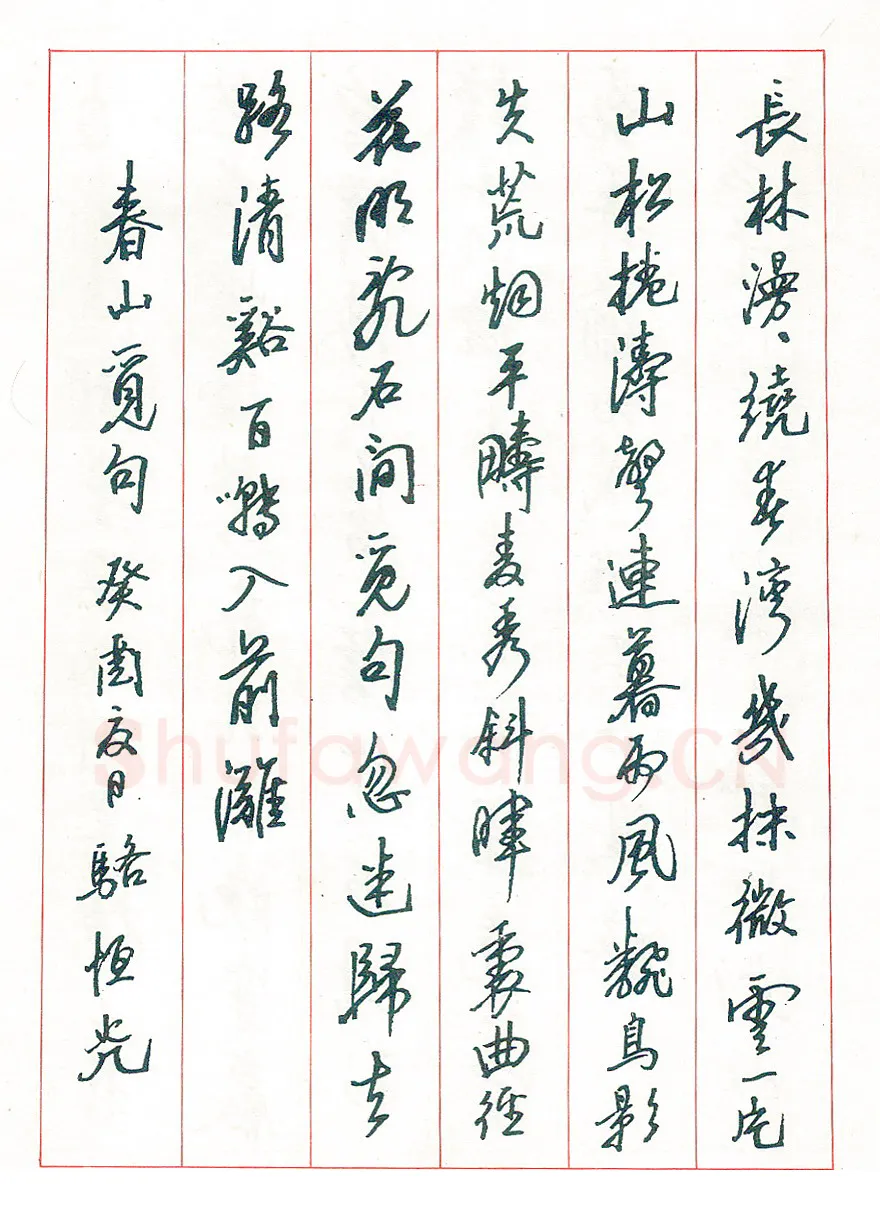 長林漫、繞春灣幾抹微雲一片
山松捲濤聲連暮雨風飜鳥影
失荒烟平疇麦秀斜暉曲徑
花明亂石间覓句忽迷歸去
路清谿百囀入前灘
春山覓句 癸酉夏月 駱恒光
Shufawang.CN